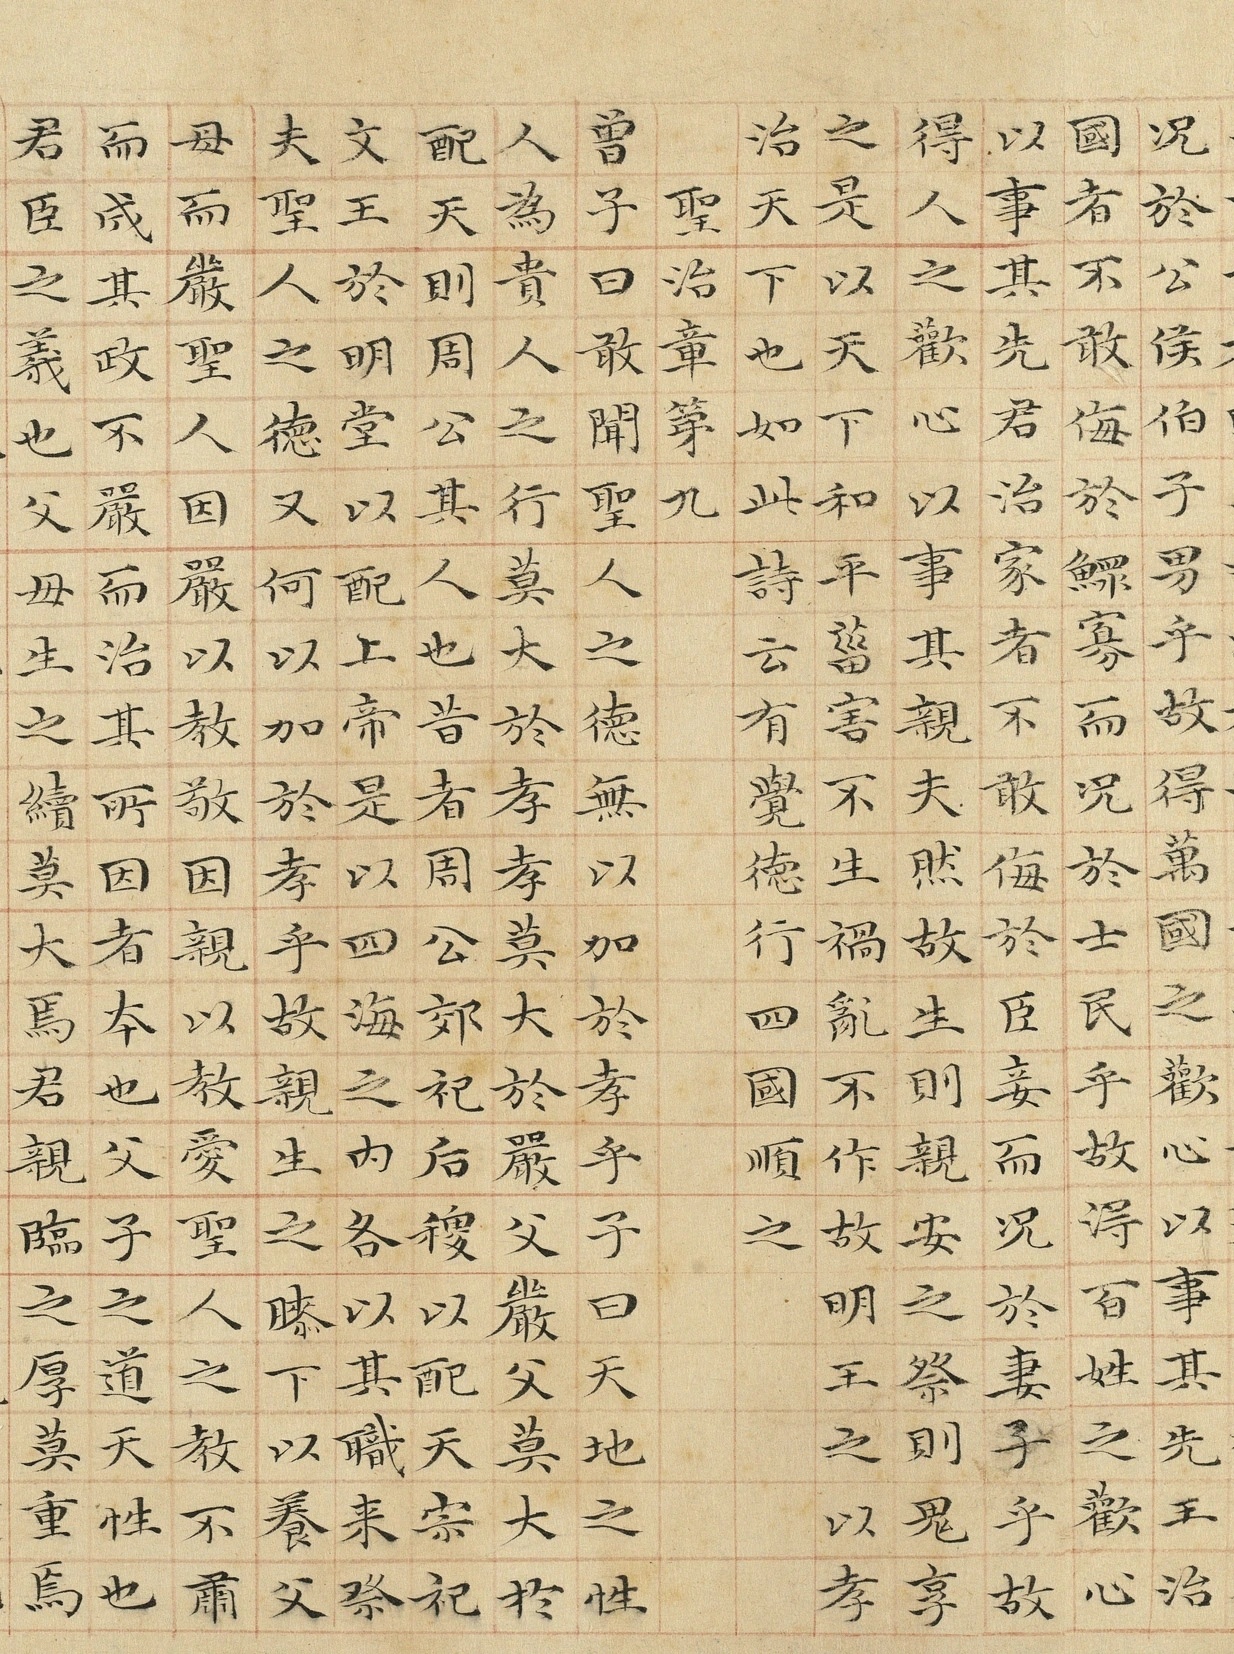 況於公侯伯子男乎故得萬國之歡心以事其先王治
國者不敢侮於鰥寡而況於士民乎故得百姓之歡心
以事其先君治家者不敢侮於臣妾而況於妻子乎故
得人之歡心以事其親夫然故生則親安之祭則鬼享
之是以天下和平菑害不生禍亂不作故明王之以孝
治天下也如此詩云有覺德行四國順之
聖治章第九
曾子曰敢聞聖人之德無以加於孝乎子曰天地之性
人為貴人之行莫大於孝孝莫大於嚴父嚴父莫大於
配天則周公其人也昔者周公郊祀后稷以配天宗祀
文王於明堂以配上帝是以四海之內各以其職来祭
夫聖人之德又何以加於孝乎故親生之膝下以養父
母而嚴聖人因嚴以教敬因親以教愛聖人之教不肅
而成其政不嚴而治其所因者本也父子之道天性也
君臣之義也父母生之續莫大焉君親臨之厚莫重焉